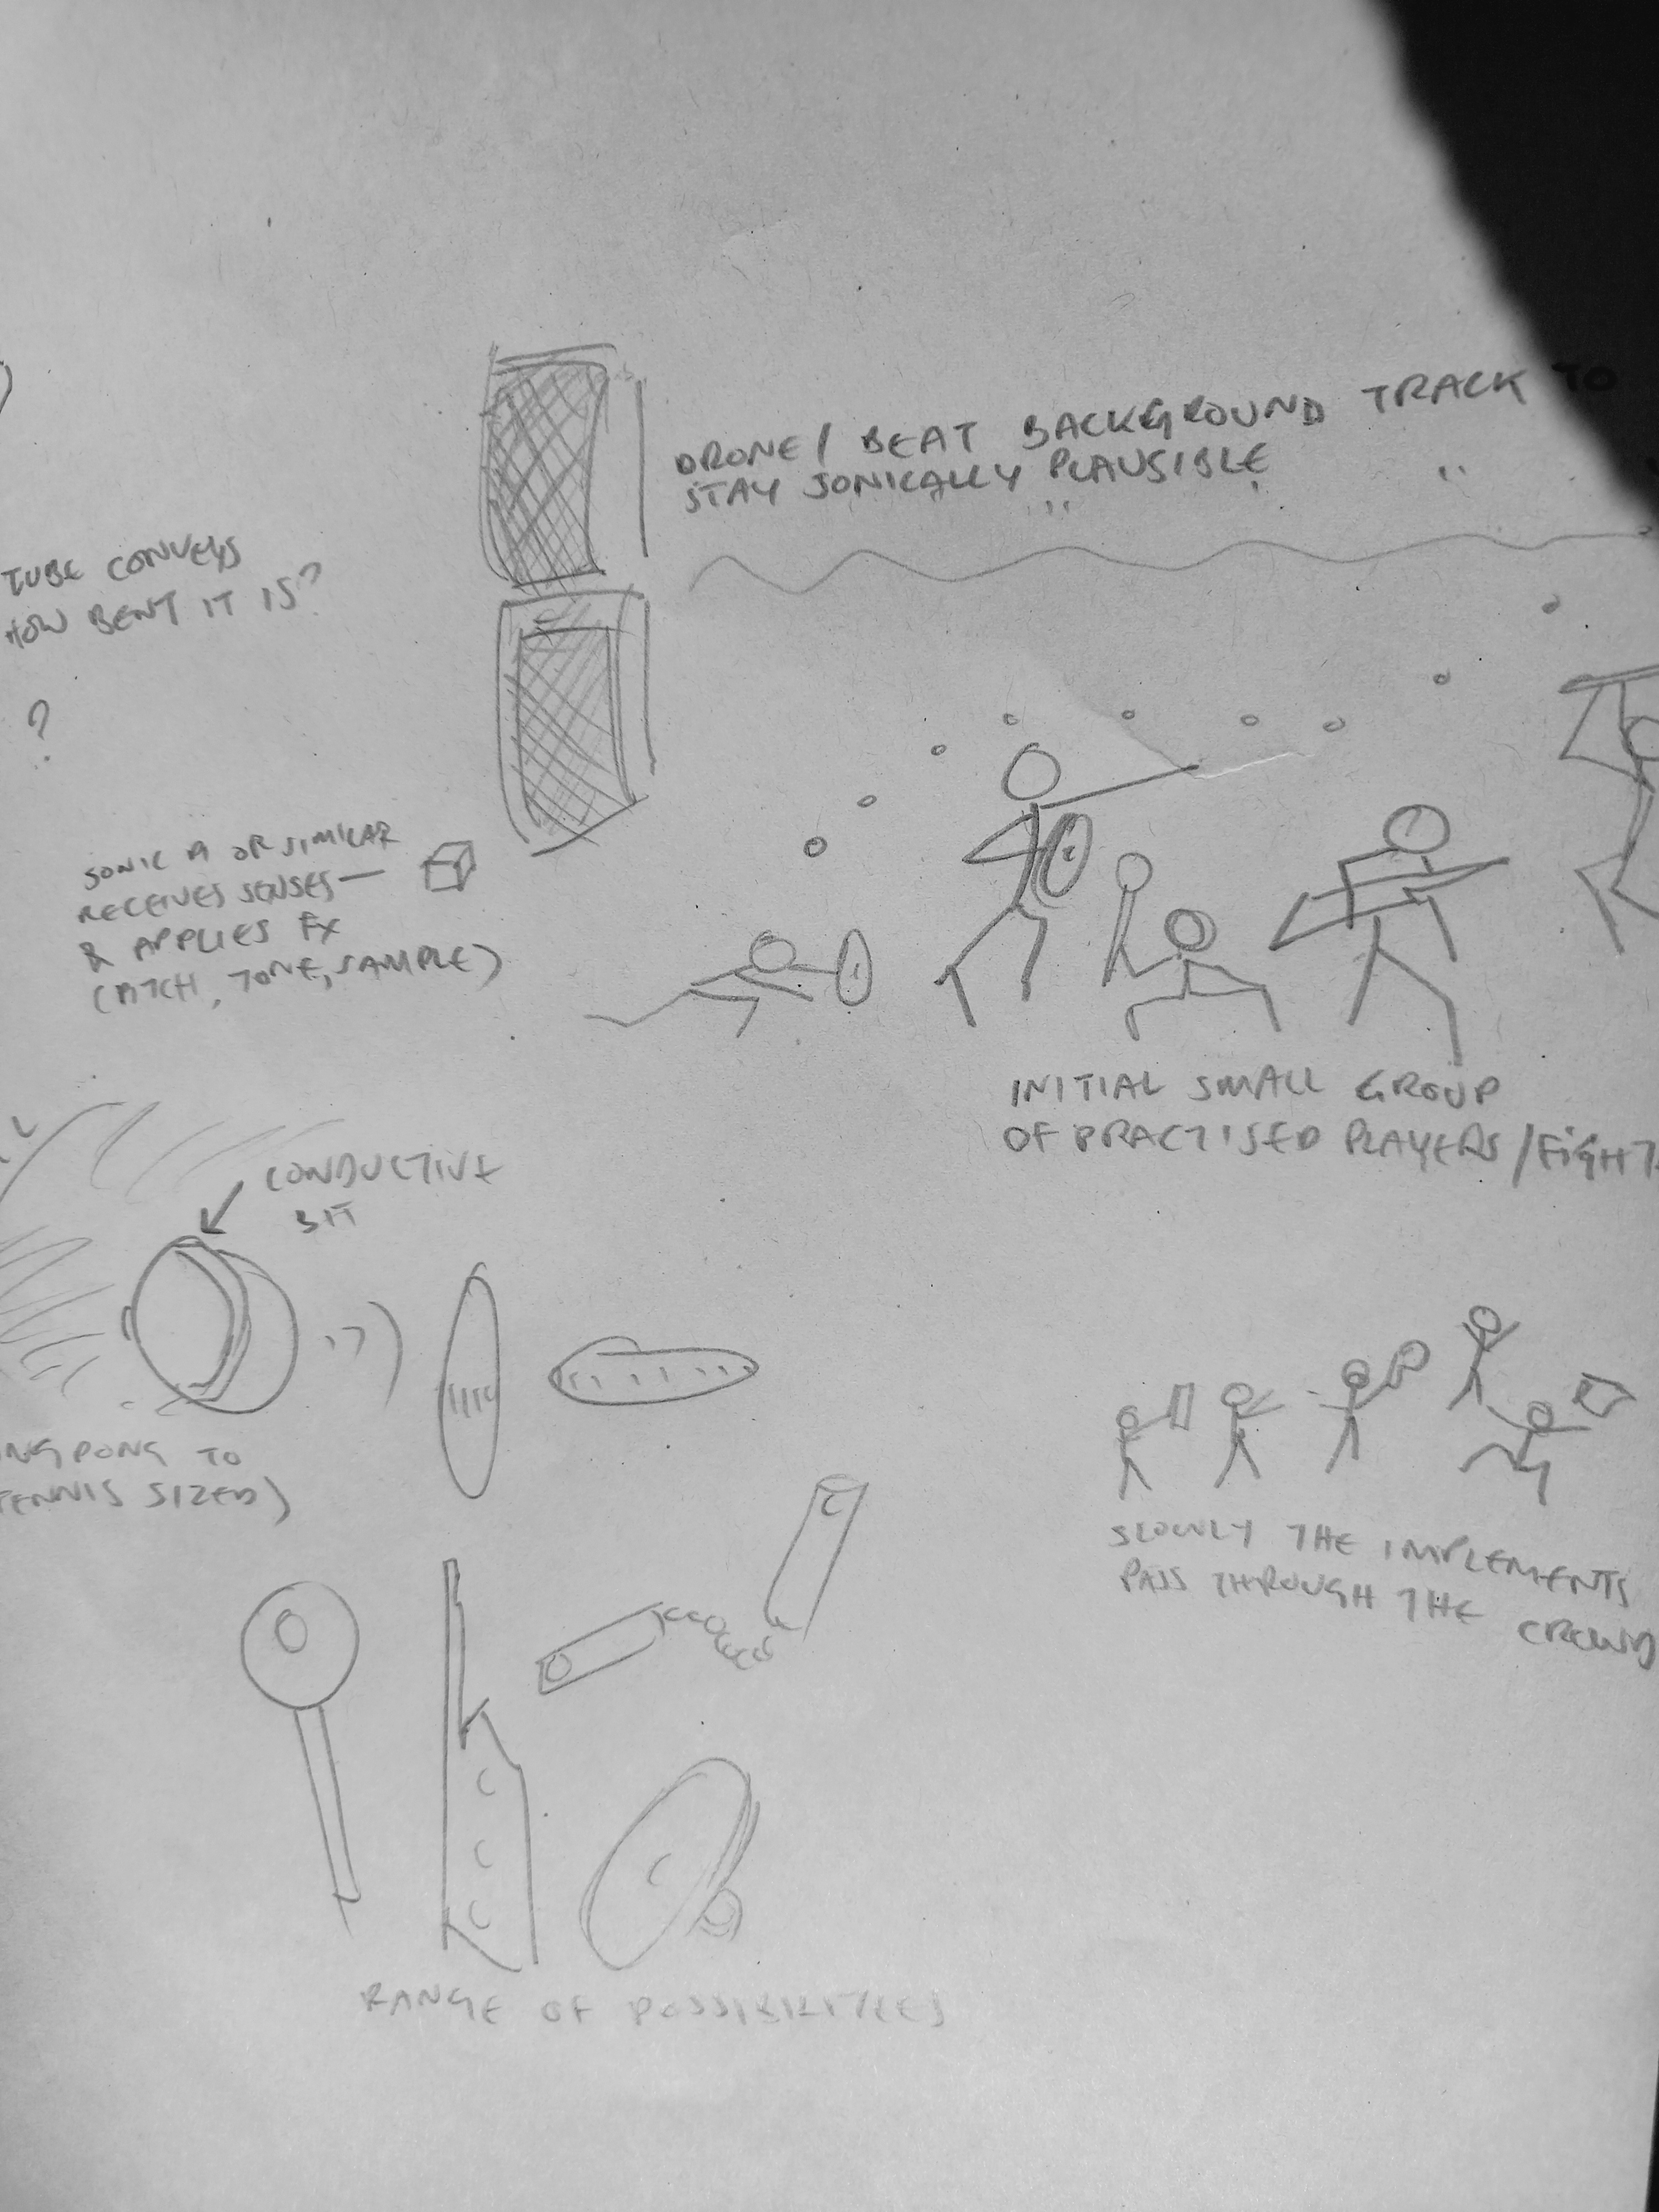 DRONE / BEAT BACKGROUND TRACK TO
STAY SONICALLY PLAUSIBLE
TUBE CONVEYS
HOW BENT IT IS?
?
SONIC PI OR SIMILAR
RECEIVES SENSES —
& APPLIES FX
(PITCH, TONE, SAMPLE)
INITIAL SMALL GROUP
OF PRACTISED PLAYERS / FIGHT
CONDUCTIVE
BIT
NG PONG TO
TENNIS SIZED)
SLOWLY THE IMPLEMENTS
PASS THROUGH THE CROWD
RANGE OF POSSIBILITIES